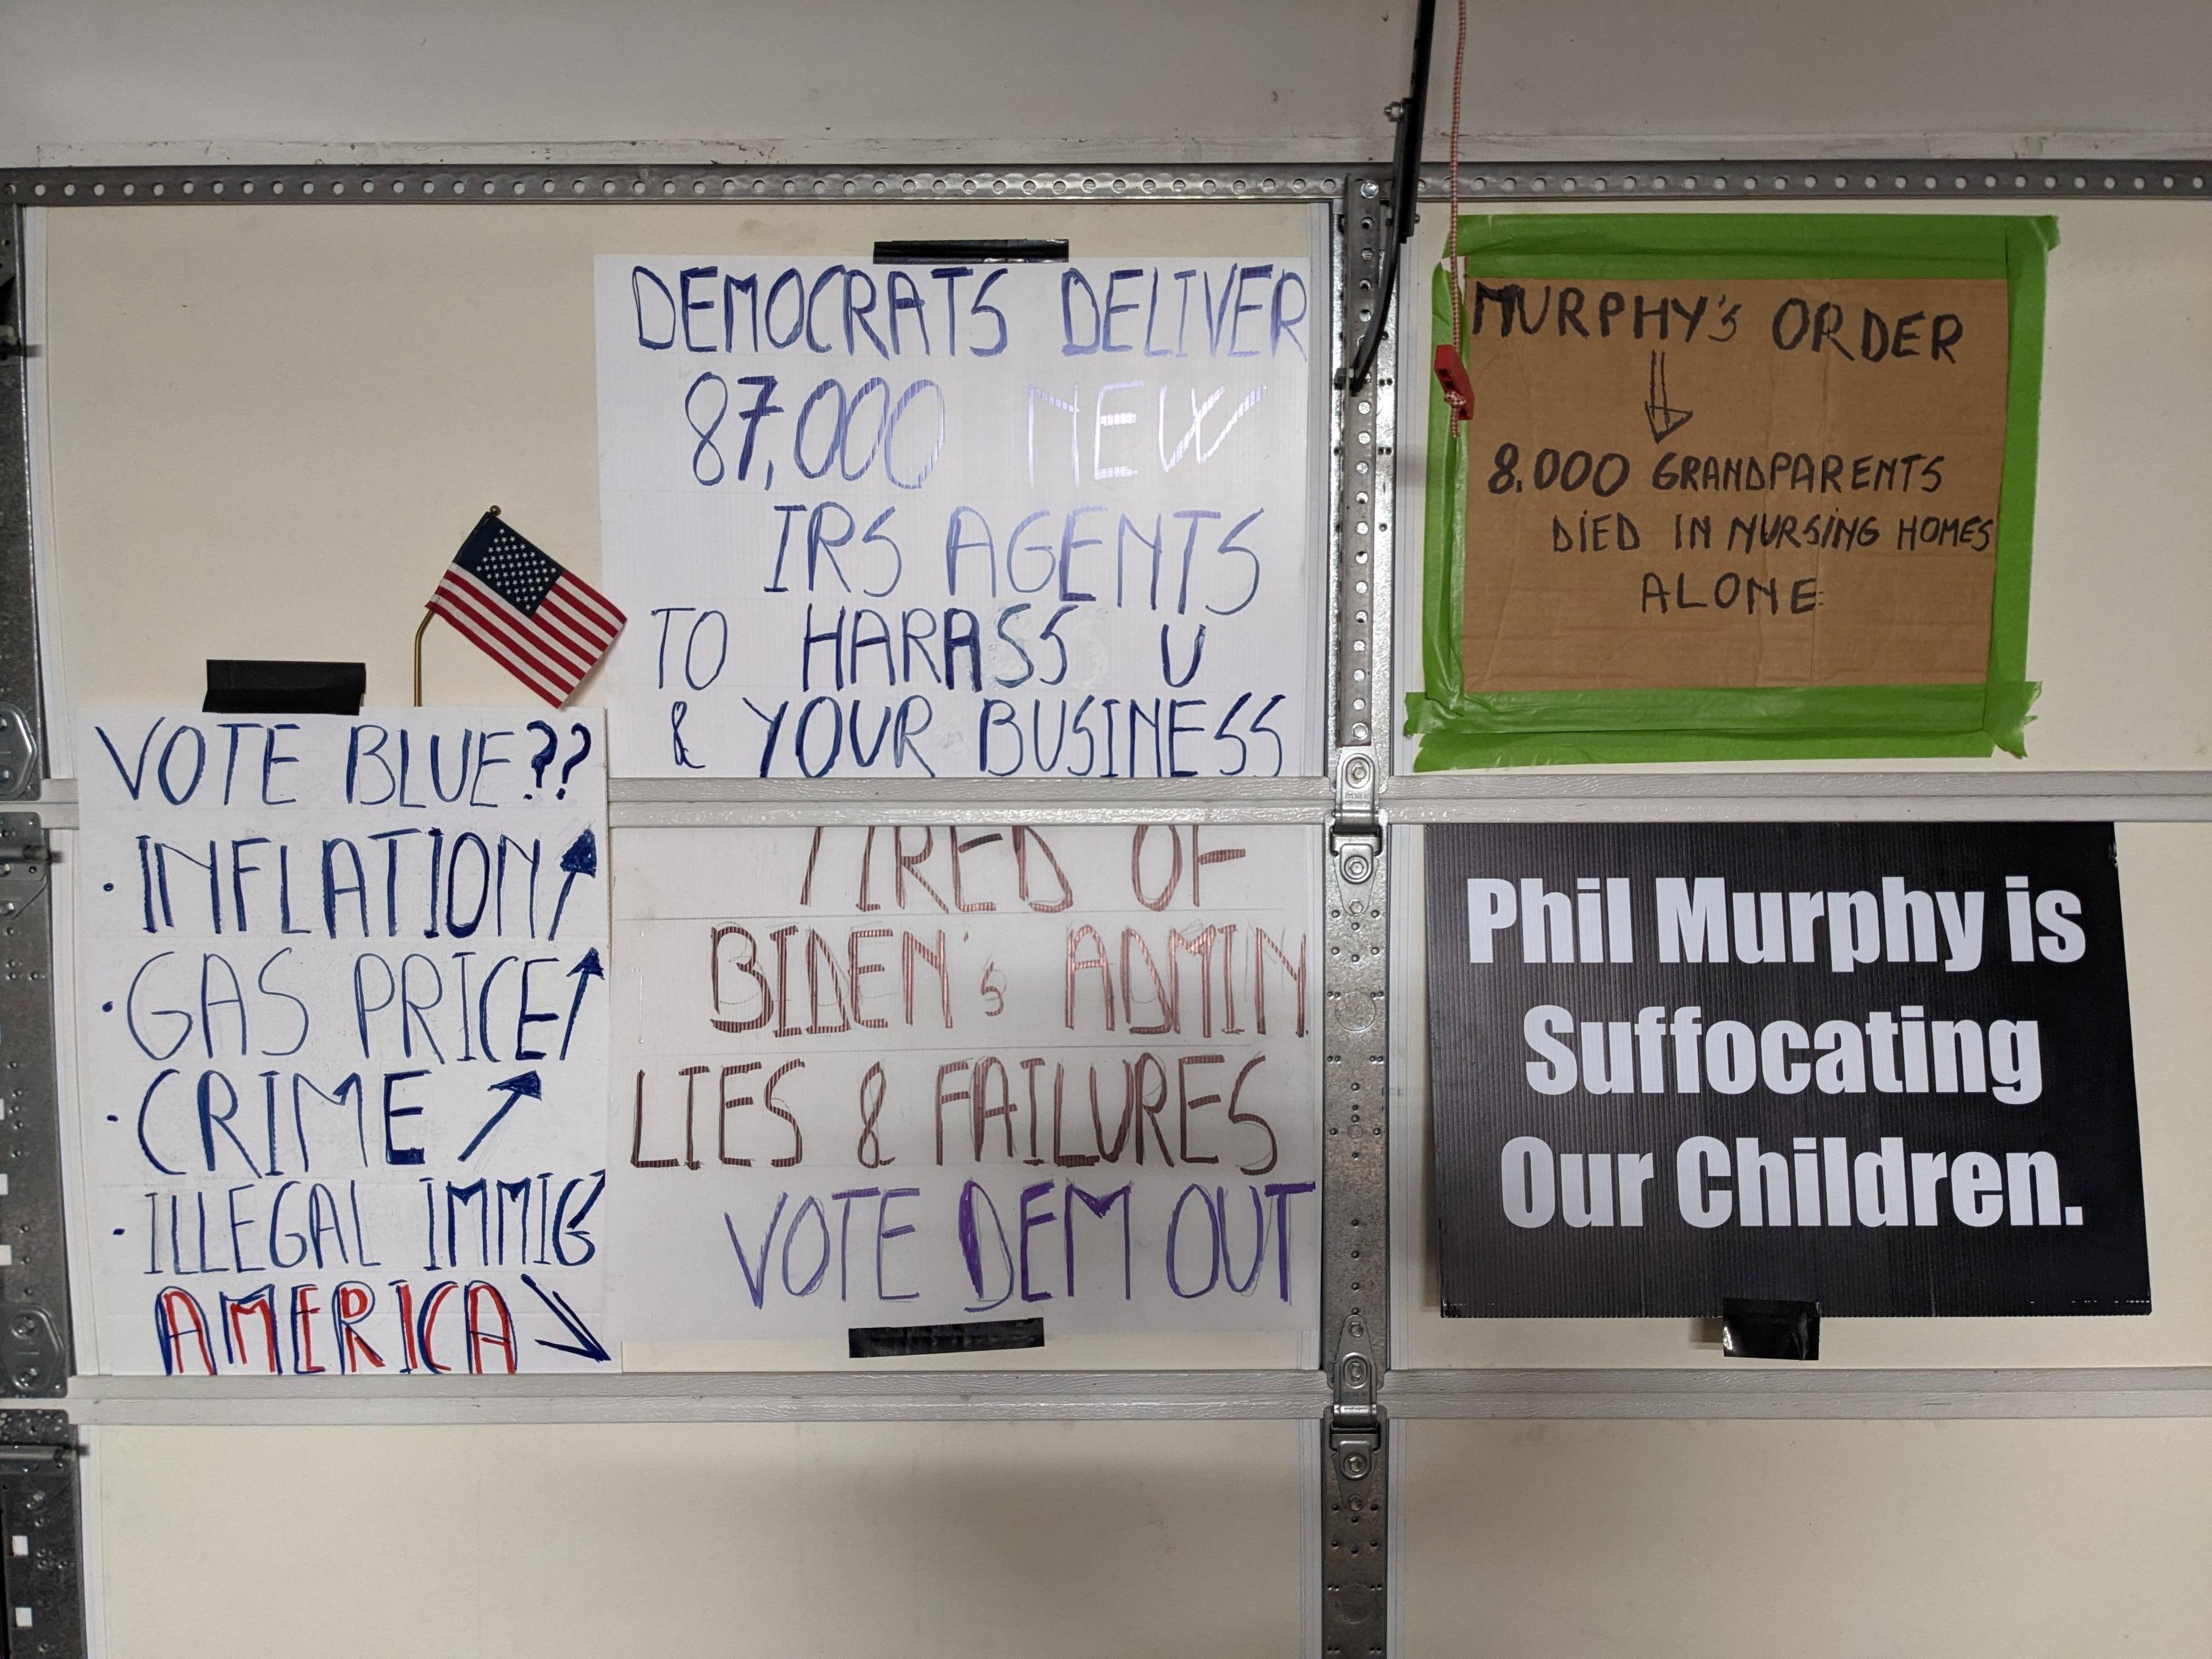 VOTE BLUE??
· INFLATION
· GAS PRICE
· CRIME
· ILLEGAL IMMIG
AMERICA
DEMOCRATS DELIVER
87,000 NEW
IRS AGENTS
TO HARASS U
& YOUR BUSINESS
TIRED OF
BIDEN's ADMIN
LIES & FAILURES
VOTE DEM OUT
MURPHY'S ORDER
8.000 GRANDPARENTS
DIED IN NURSING HOMES
ALONE
Phil Murphy is
Suffocating
Our Children.